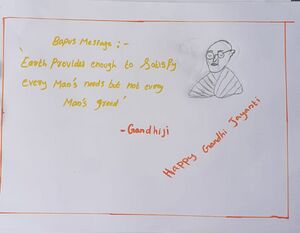 Bapus Message :-
'Earth Provides enough to Satisfy
every Man's needs but not every
Man's greed'
- Gandhiji
Happy Gandhi Jayanti